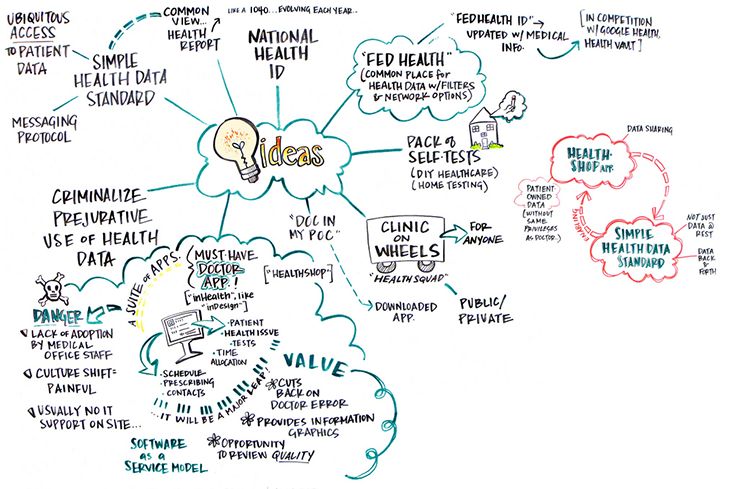 UBIQUITOUS
ACCESS
TO PATIENT
DATA
COMMON
VIEW...
HEALTH
REPORT
LIKE A 1040...EVOLVING EACH YEAR..
SIMPLE
HEALTH DATA
STANDARD
MESSAGING
PROTOCOL
NATIONAL
HEALTH
ID
"FED HEALTH"
(COMMON PLACE for
HEALTH DATA W/FILTERS
& NETWORK OPTIONS)
"FED HEALTH ID"
UPDATED W/ MEDICAL
INFO.
[IN COMPETITION
W/ GOOGLE HEALTH,
HEALTH VAULT]
ideas
PACK of
SELF-TESTS
(DIY HEALTHCARE)
(HOME TESTING)
DATA SHARING
HEALTH-
SHOP APP.
PATIENT
OWNED
DATA
(WITHOUT
SAME
PRIVILEGES
AS DOCTOR..)
SIMPLE
HEALTH DATA
STANDARD
NOT JUST
DATA @
REST
DATA
BACK &
FORTH
CRIMINALIZE
PREJURATIVE
USE OF HEALTH
DATA
"DOC IN
MY POC"
DOWNLOADED
APP.
CLINIC
ON
WHEELS
"HEALTH SQUAD"
FOR
ANYONE
PUBLIC/
PRIVATE
A SUITE of APPS.
MUST HAVE
DOCTOR
APP.!
["inHealth", like
"inDesign"]
["HEALTHSHOP"]
DANGER
LACK OF ADOPTION
BY MEDICAL
OFFICE STAFF
CULTURE SHIFT=
PAINFUL
USUALLY NO IT
SUPPORT ON SITE...
•PATIENT
•HEALTH ISSUE
•TESTS
•TIME
ALLOCATION
•SCHEDULE
•PRESCRIBING
•CONTACTS
...IT WILL BE A MAJOR LEAP!
VALUE
CUTS
BACK ON
DOCTOR ERROR
PROVIDES INFORMATION
GRAPHICS
OPPORTUNITY
TO REVIEW QUALITY
SOFTWARE
as a
SERVICE MODEL